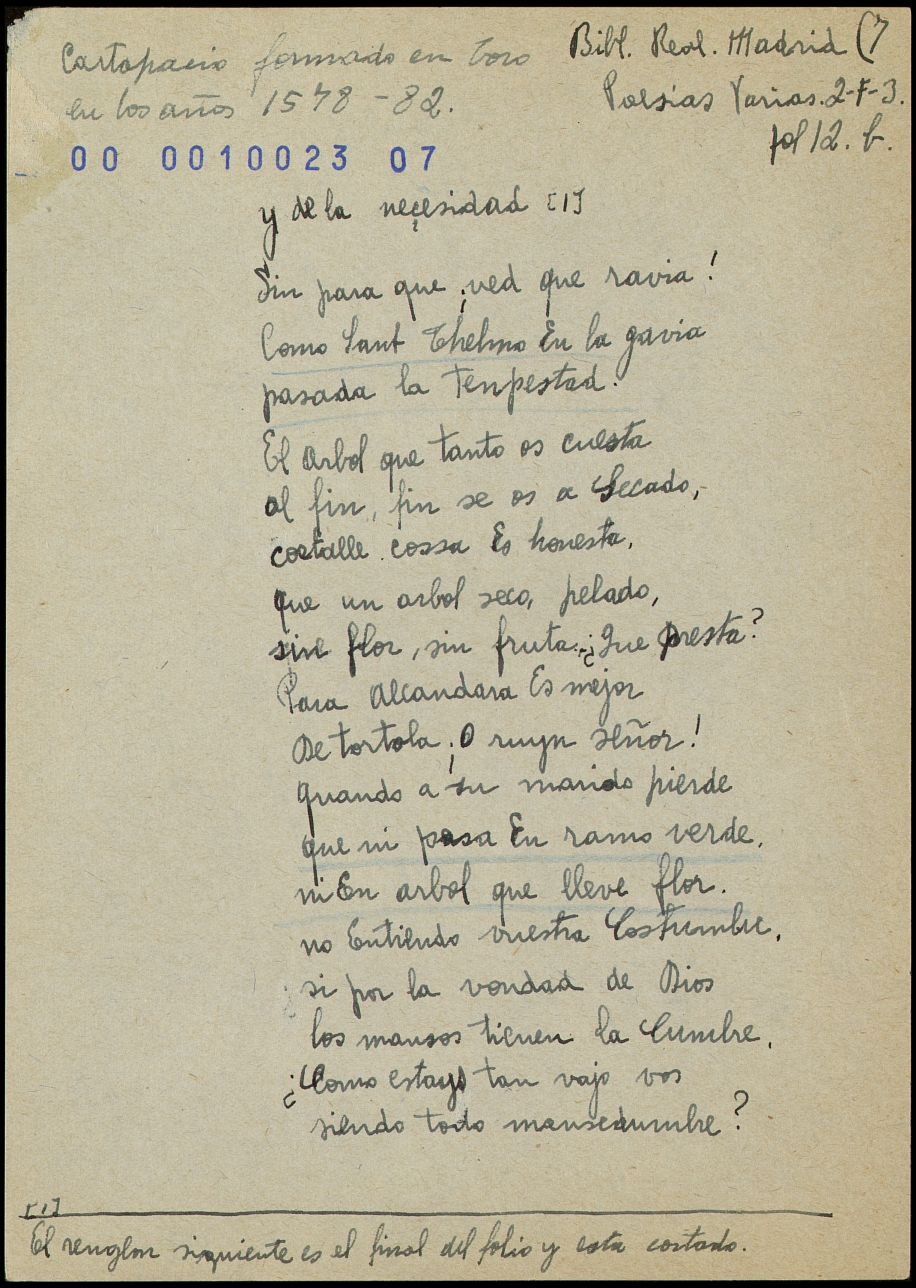 Cartapacio formado en Toro
en los años 1578-82.
Bibl. Real. Madrid (7
Poesías Varias. 2-F-3.
fol 12. b.
00 0010023 07
y de la neçesidad [1]
Sin para que ¡ved que ravia!
Como Sant Thelmo En la gavia
pasada la Tenpestad.
El arbol que tanto os cuesta
al fin, fin se os a Secado,
cortalle cossa Es honesta,
que un arbol seco, pelado,
sin flor, sin fruta.-¿Que presta?
Para Alcandara Es mejor
De tortola ¡O ruyn señor!
quando a su marido pierde
que ni posa En ramo verde,
ni En arbol que lleve flor.
no Entiendo vuestra Costumbre,
si por la vondad de Dios
los mansos tienen la Cumbre,
¿Como estays tan vajo vos
siendo todo mansedumbre?
[1]
El renglon siguiente es el final del folio y esta cortado.